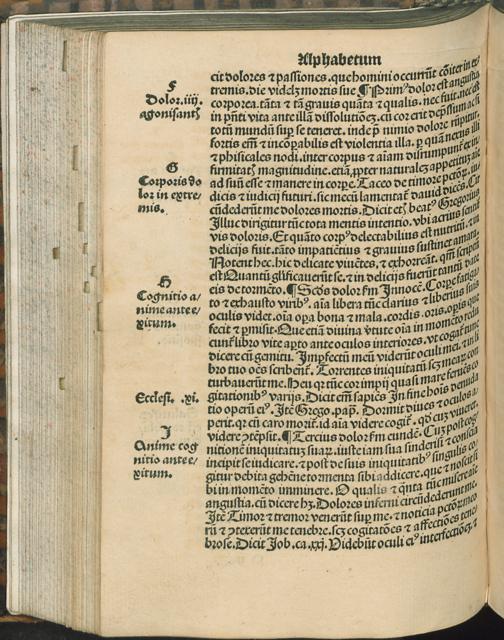 Alphabetum
F
Dolor.iiij.
agonisantiũ
G
Corporis do
lor in extre
mis.
H
Cognitio a/
nime ante e/
xitum.
Ecclesi. .xi.
I
Anime cog
nitio ante e/
xitum.
cit dolores ⁊ passiones.que homini occurrũt cõiter in ex/
tremis.die videlꝫ mortis sue ¶ Primꝰ dolor est angustia
corporea.tãta ⁊ tã gravis quãta ⁊ qualis.nec fuit.nec est
in pñti vita ante illã dissolutionẽ.cũ cor erit depssum ac si
totũ mundũ sup se teneret.inde p nimio dolore rũpitur.
fortis em̃ ⁊ incõpabilis est violentia illa.p quã nexus illi
⁊ phisicales nodi.inter corpus ⁊ aiam disrumpunt
firmitatꝫ magnitudine.etiã.ppter naturalez appetitũ
ad suũ esse ⁊ manere in corpe.Taceo de timore pctõꝝ
dicis ⁊ iudicij futuri.sic mecũ lamentat̃ david dicẽs.Cir
cũdederũt me dolores mortis.Dicit etiã beatꝰ Gregorius
Illuc dirigitur tũc tota mentis intentio.vbi acriꝰ sentit
vis doloris.Et quãto corpꝰ delectabilius est nutritũ.⁊ in
delicijs fuit.tãto impatiẽtius ⁊ gravius sustinet amara.
Notent hec.hic delicate viuẽtes.⁊ exhorreãt.qm̃ scriptũ
est Quantũ glificaverũt se.⁊ in delicijs fuerũt tantũ date
eis de tormẽto. ¶ Scdꝰ dolor fm Innocẽ.Corpe fatiga
to ⁊ exhausto viribꝰ.aia libera tũc clarius ⁊ liberius suis
oculis videt.oia opa bona ⁊ mala.cordis.oris.opis que
fecit ⁊ pmisit.Que etiã divina vtute oia in momẽto
cunt̃ libro vite apto ante oculos interiores.vt cogat̃ tunc
dicere cũ gemitu.Impfectũ meũ viderũt oculi mei.⁊ in li
bro tuo oẽs scribent̃.Torrentes iniquitatũ scꝫ mearꝝ con
turbaverũt me.Heu qr tũc cor impij quasi mare ferves
gitationibꝰ varijs.Dicit em̃ sapiẽs In fine hoĩs denuda
tio operũ eiꝰ.Itẽ Grego.pap.Dormit dives ⁊ oculos a/
perit.qr cũ caro morit̃.id aia videre cogit̃.qd cum viveret.
videre ꝯtẽpsit. ¶ Tercius dolor fm eundẽ.Cuꝫ post cog
nitionẽ iniquitatuꝫ suaꝝ.iuste iam sua sinderesi ⁊ conscia
incipit se iudicare.⁊ post de suis iniquitatibꝰ singulis co
gitur debita gehẽne tormenta sibi addicere.que ⁊ noscit
bi in momẽto imminere.O qualis ⁊ q̃nta tũc misere aĩe
angustia.cũ dicere hꝫ.Dolores inferni circũdederunt me.
Itẽ Timor ⁊ tremor venerũt sup me.⁊ noticia pctõꝝ meo
rũ ⁊ ꝯtexerũt me tenebre.scꝫ cogitatões ⁊ affectiões tene
brose.Dicit Job.ca.xxj.Videbũt oculi eiꝰ interfectionẽ.⁊